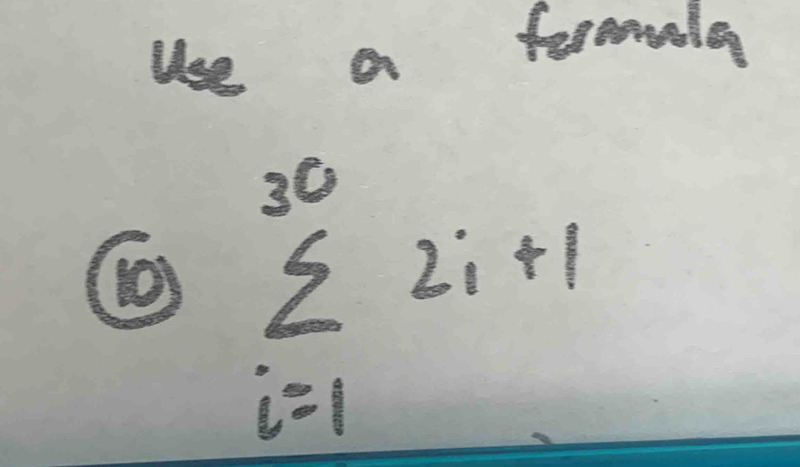 Use a formula
30
⑩ Σ 2i + 1
i = 1